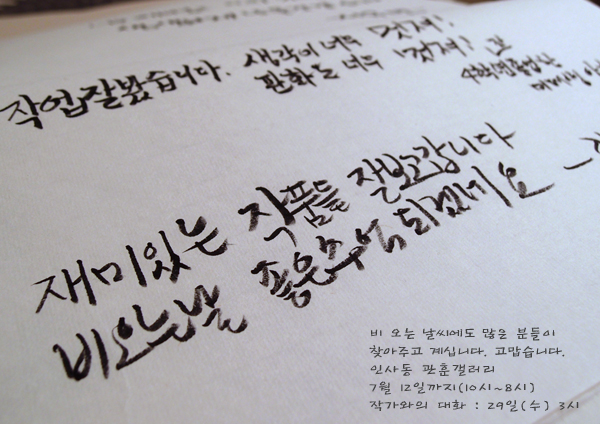 작업잘봤습니다. 생각이 너무 멋져!
판화도 너무 멋져!
재미있는 작품들 잘보고갑니다
비오는날 좋은추억 되겠네요
비 오는 날씨에도 많은 분들이
찾아주고 계십니다. 고맙습니다.
인사동 판훈갤러리
7월 12일까지(10시~8시)
작가와의 대화 : 29일(수) 3시